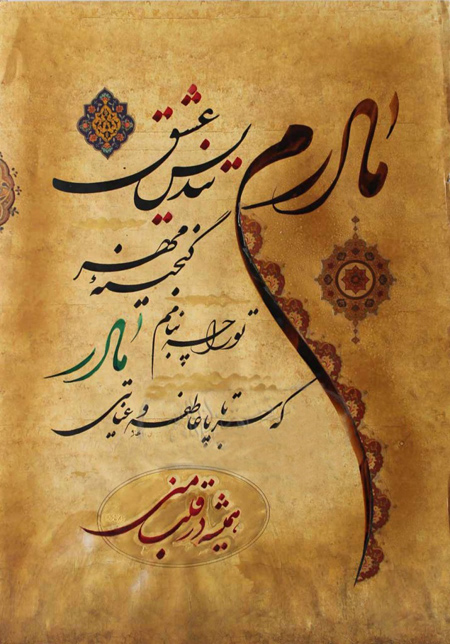 مادرم
تندیس عشق
گنجینهٔ مهر
تو را چه بنامم
مادر
که سرتاپا عاطفه و عنایتی
همیشه در قلب منی